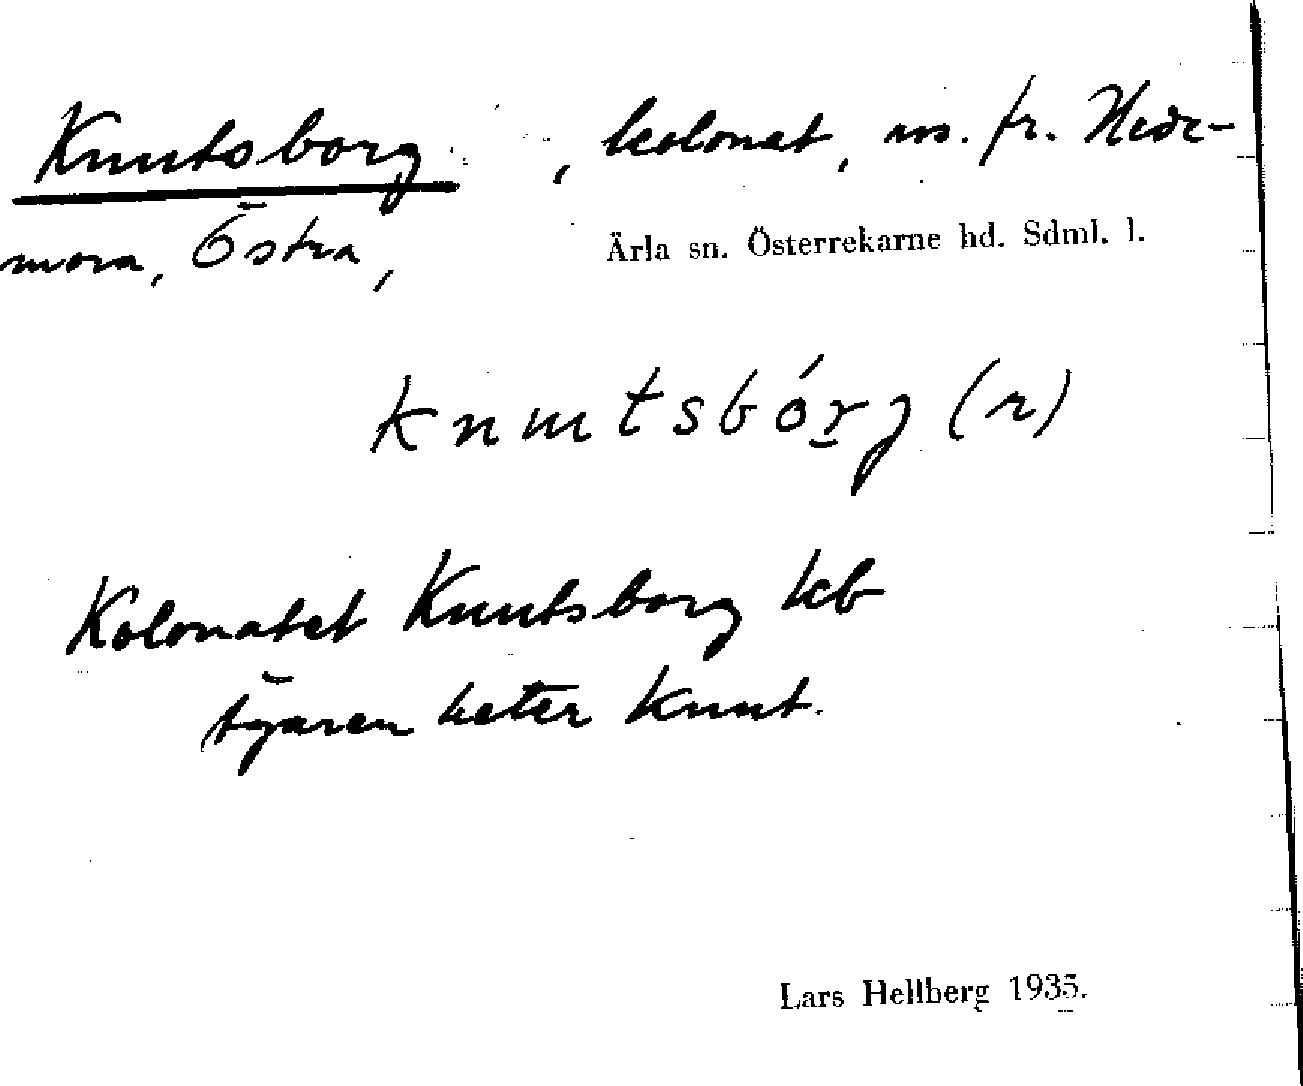 Knutsborg, kolonat, us. fr. Hede-
mora, Östra,
Ärla sn. Österrekarne hd. Sdml. l.
knutsbórg (r)
Kolonatet Knutsborg kb
byaren heter Knut.
Lars Hellberg 1935.